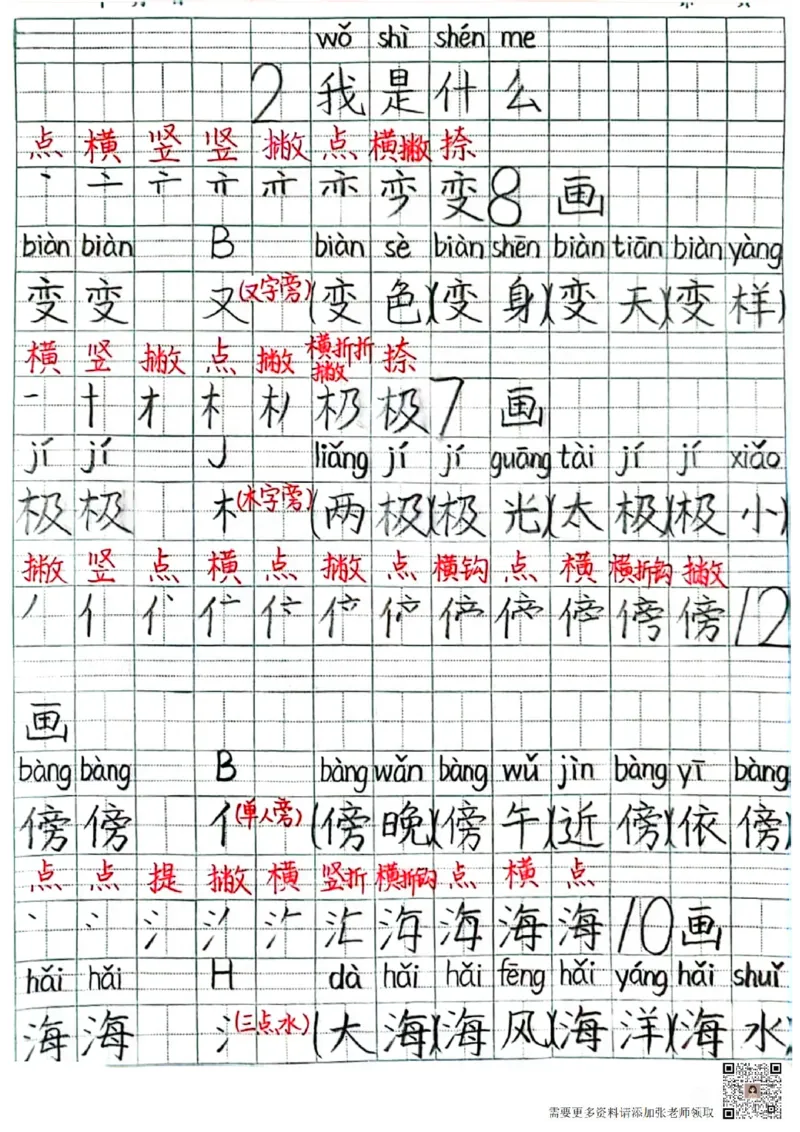 wǒ shì shén me
2 我是什么
点 横 竖 竖 撇 点 横撇 捺
变 8 画
biàn biàn B biàn sè biàn shēn biàn tiān biàn yàng
变 变 又(又字旁)(变色)(变身)(变天)(变样)
横 竖 撇 点 撇 横折折撇 捺
一 十 才 木 极 7 画
jí jí J liǎng jí jí guāng tài jí jí xiǎo
极 极 木(木字旁)(两极)(极光)(太极)(极小)
撇 竖 点 横 点 撇 点 横钩 点 横 横折钩 撇
丿 亻 傍 12
画
bàng bàng B bàng wǎn bàng wǔ jìn bàng yī bàng
傍 傍 亻(单人旁)(傍晚)(傍午)(近傍)(依傍)
点 点 提 撇 横 竖折 横折钩 点 横 点
丶 冫 氵 汇 海 海 海 海 10 画
hǎi hǎi H dà hǎi hǎi fēng hǎi yáng hǎi shuǐ
海 海 氵(三点水)(大海)(海风)(海洋)(海水)
需要更多资料请添加张老师领取